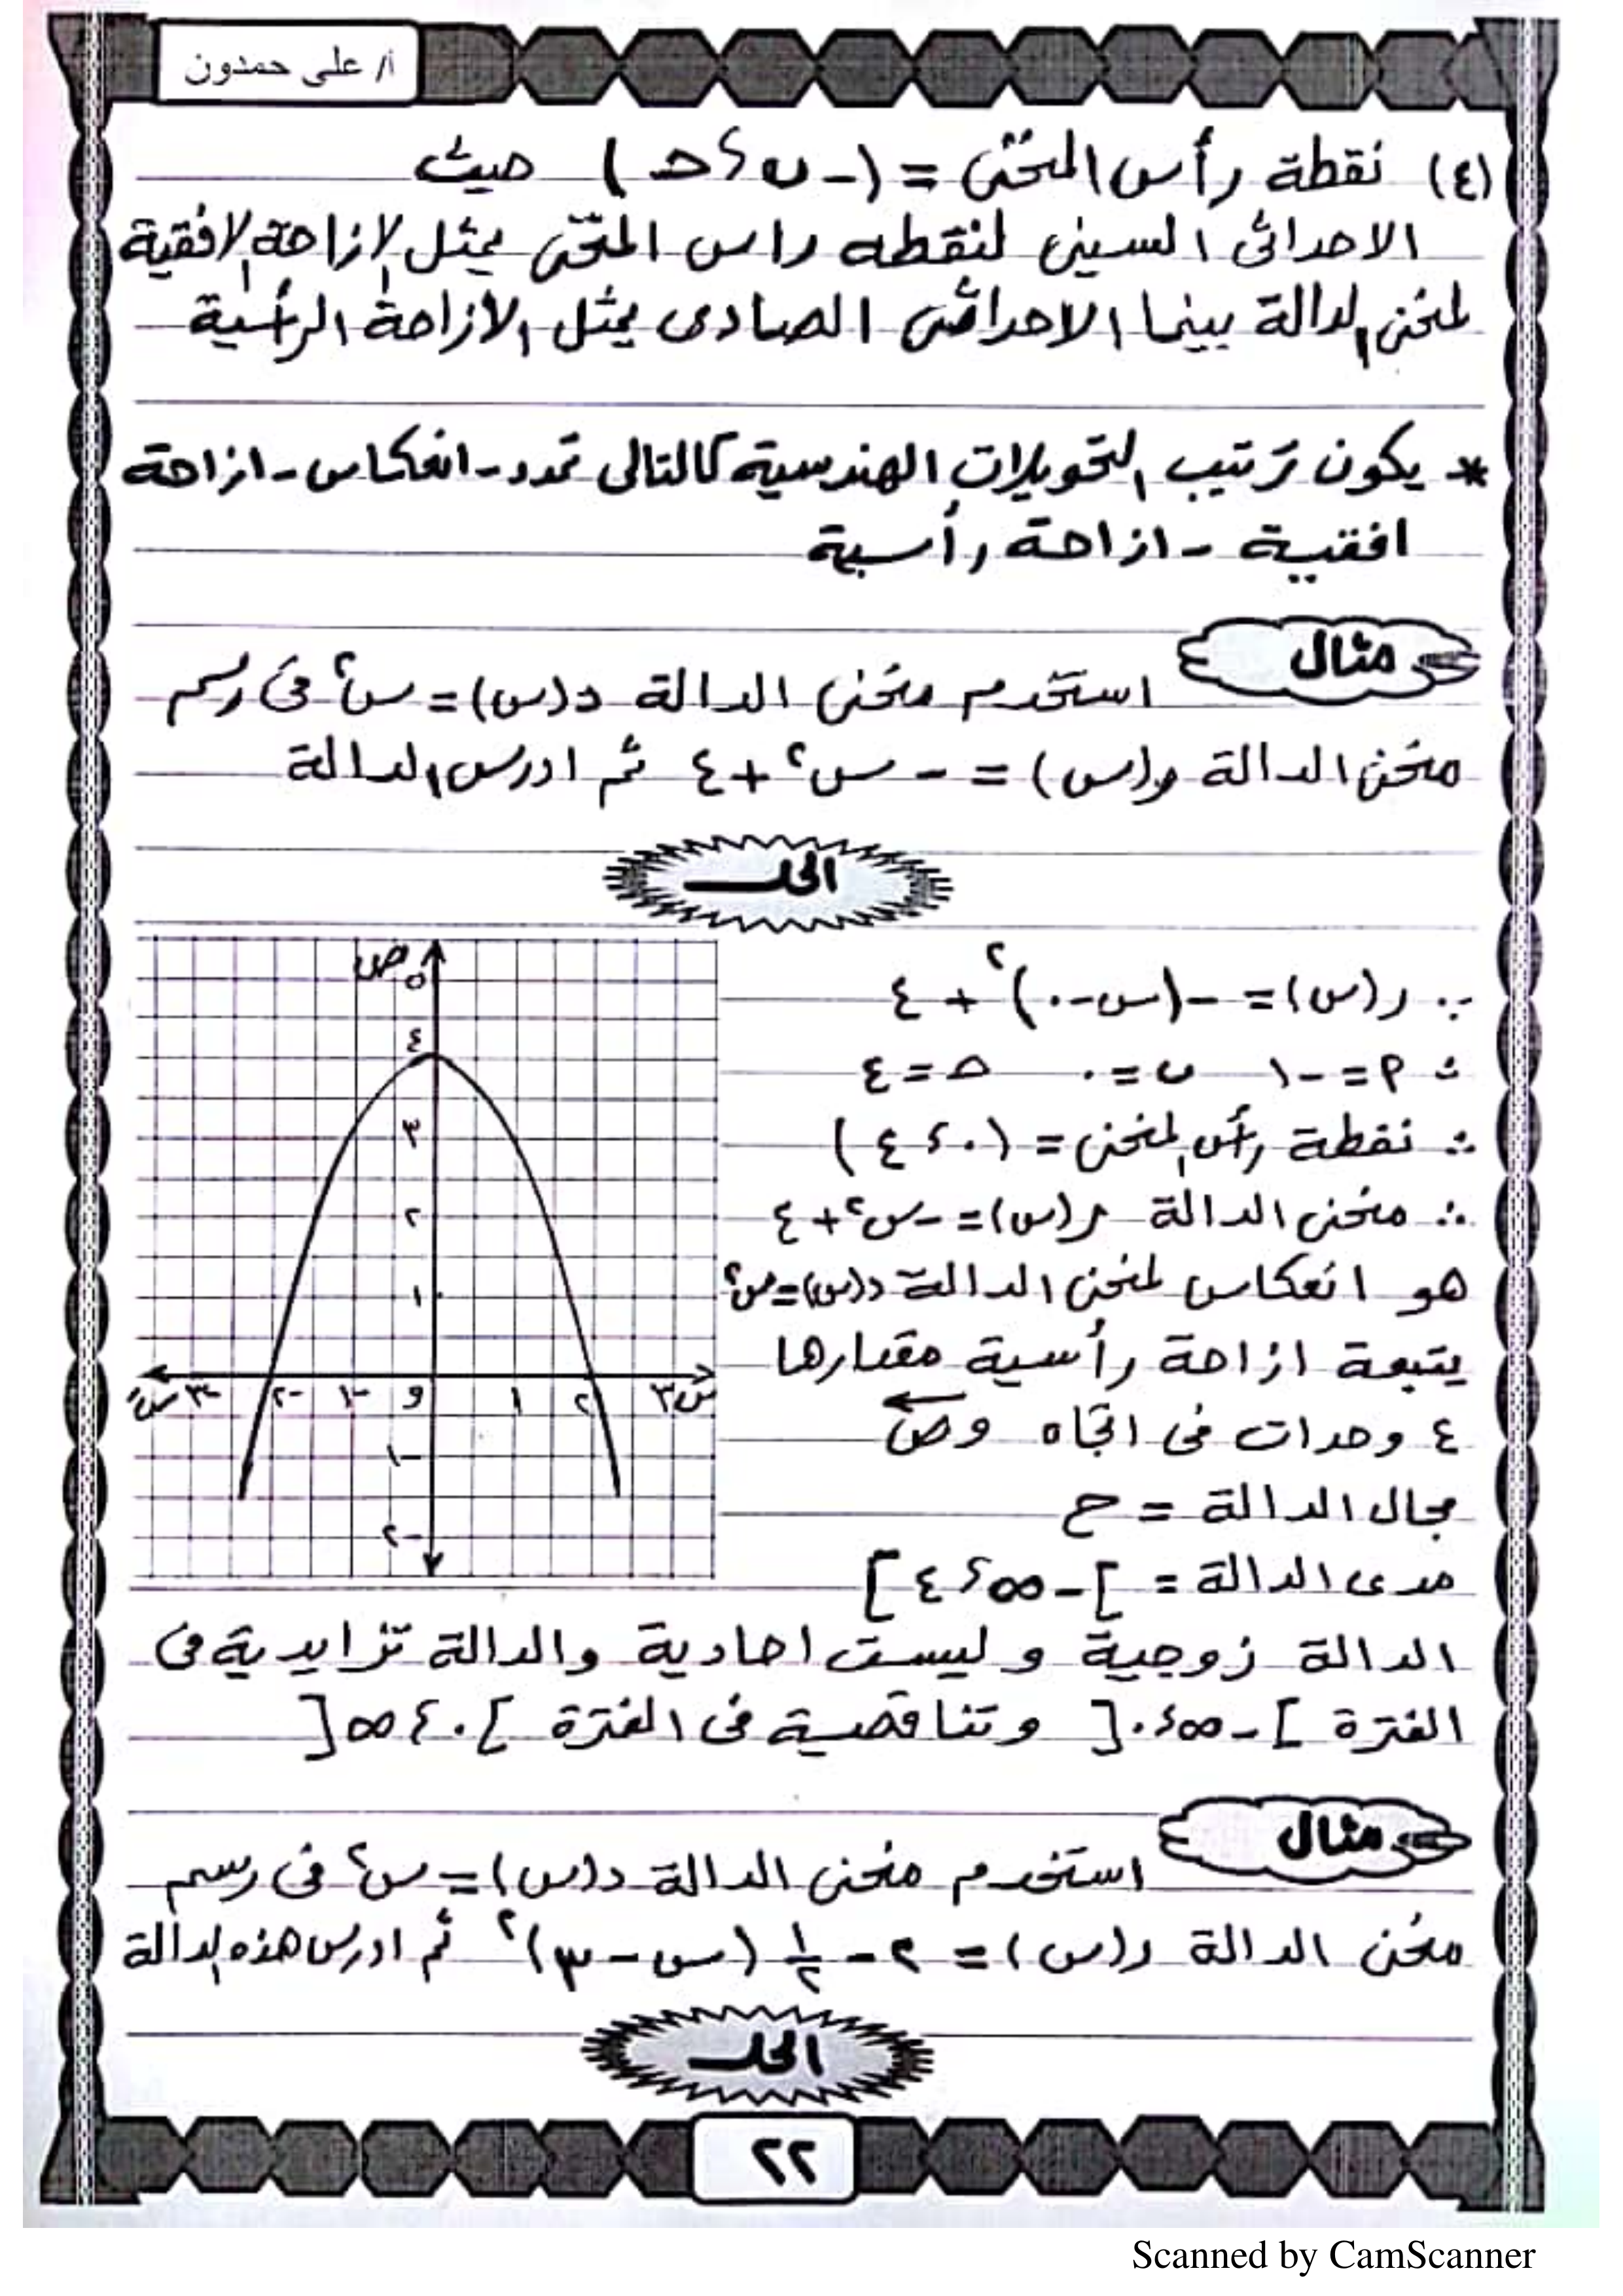 أ/ على حمدون
(٤) نقطة رأس المنحنى = (- ب ، حـ) حيث
الاحداثى السينى لنقطه راس المنحنى يمثل الازاحة الافقية
لمنحنى الدالة بينما الاحداثى الصادى يمثل الأزاحة الرأسية
* يكون ترتيب التحويلات الهندسية كالتالى تمدد - انعكاس - ازاحة
افقية - ازاحة رأسية
مثال
استخدم منحنى الدالة د(س) = س٢ فى رسم
منحنى الدالة ر(س) = - س٢ + ٤ ثم ادرس الدالة
الحل
∵ ر(س) = - (س - ٠)٢ + ٤
∴ ٩ = - ١ ب = ٠ حـ = ٤
∴ نقطة رأس المنحنى = (٠ ، ٤)
∴ منحنى الدالة ر(س) = - س٢ + ٤
هو انعكاس لمنحنى الدالة د(س) = س٢
يتبعة ازاحة رأسية مقدارها
٤ وحدات فى اتجاه وص
مجال الدالة = ح
مدى الدالة = ]- ∞ ، ٤]
ص
٥
٤
٣
٢
١
س َ -٣ -٢ -١ و ١ ٢ ٣ س
-١
-٢
الدالة زوجية وليست احادية والدالة تزايدية فى
الفترة ]- ∞ ، ٠[ وتناقصية فى الفترة ]٠ ، ∞[
مثال
استخدم منحنى الدالة د(س) = س٢ فى رسم
منحنى الدالة ر(س) = ٢ - ١/٢ (س - ٣)٢ ثم ادرس هذه الدالة
الحل
٢٢
Scanned by CamScanner